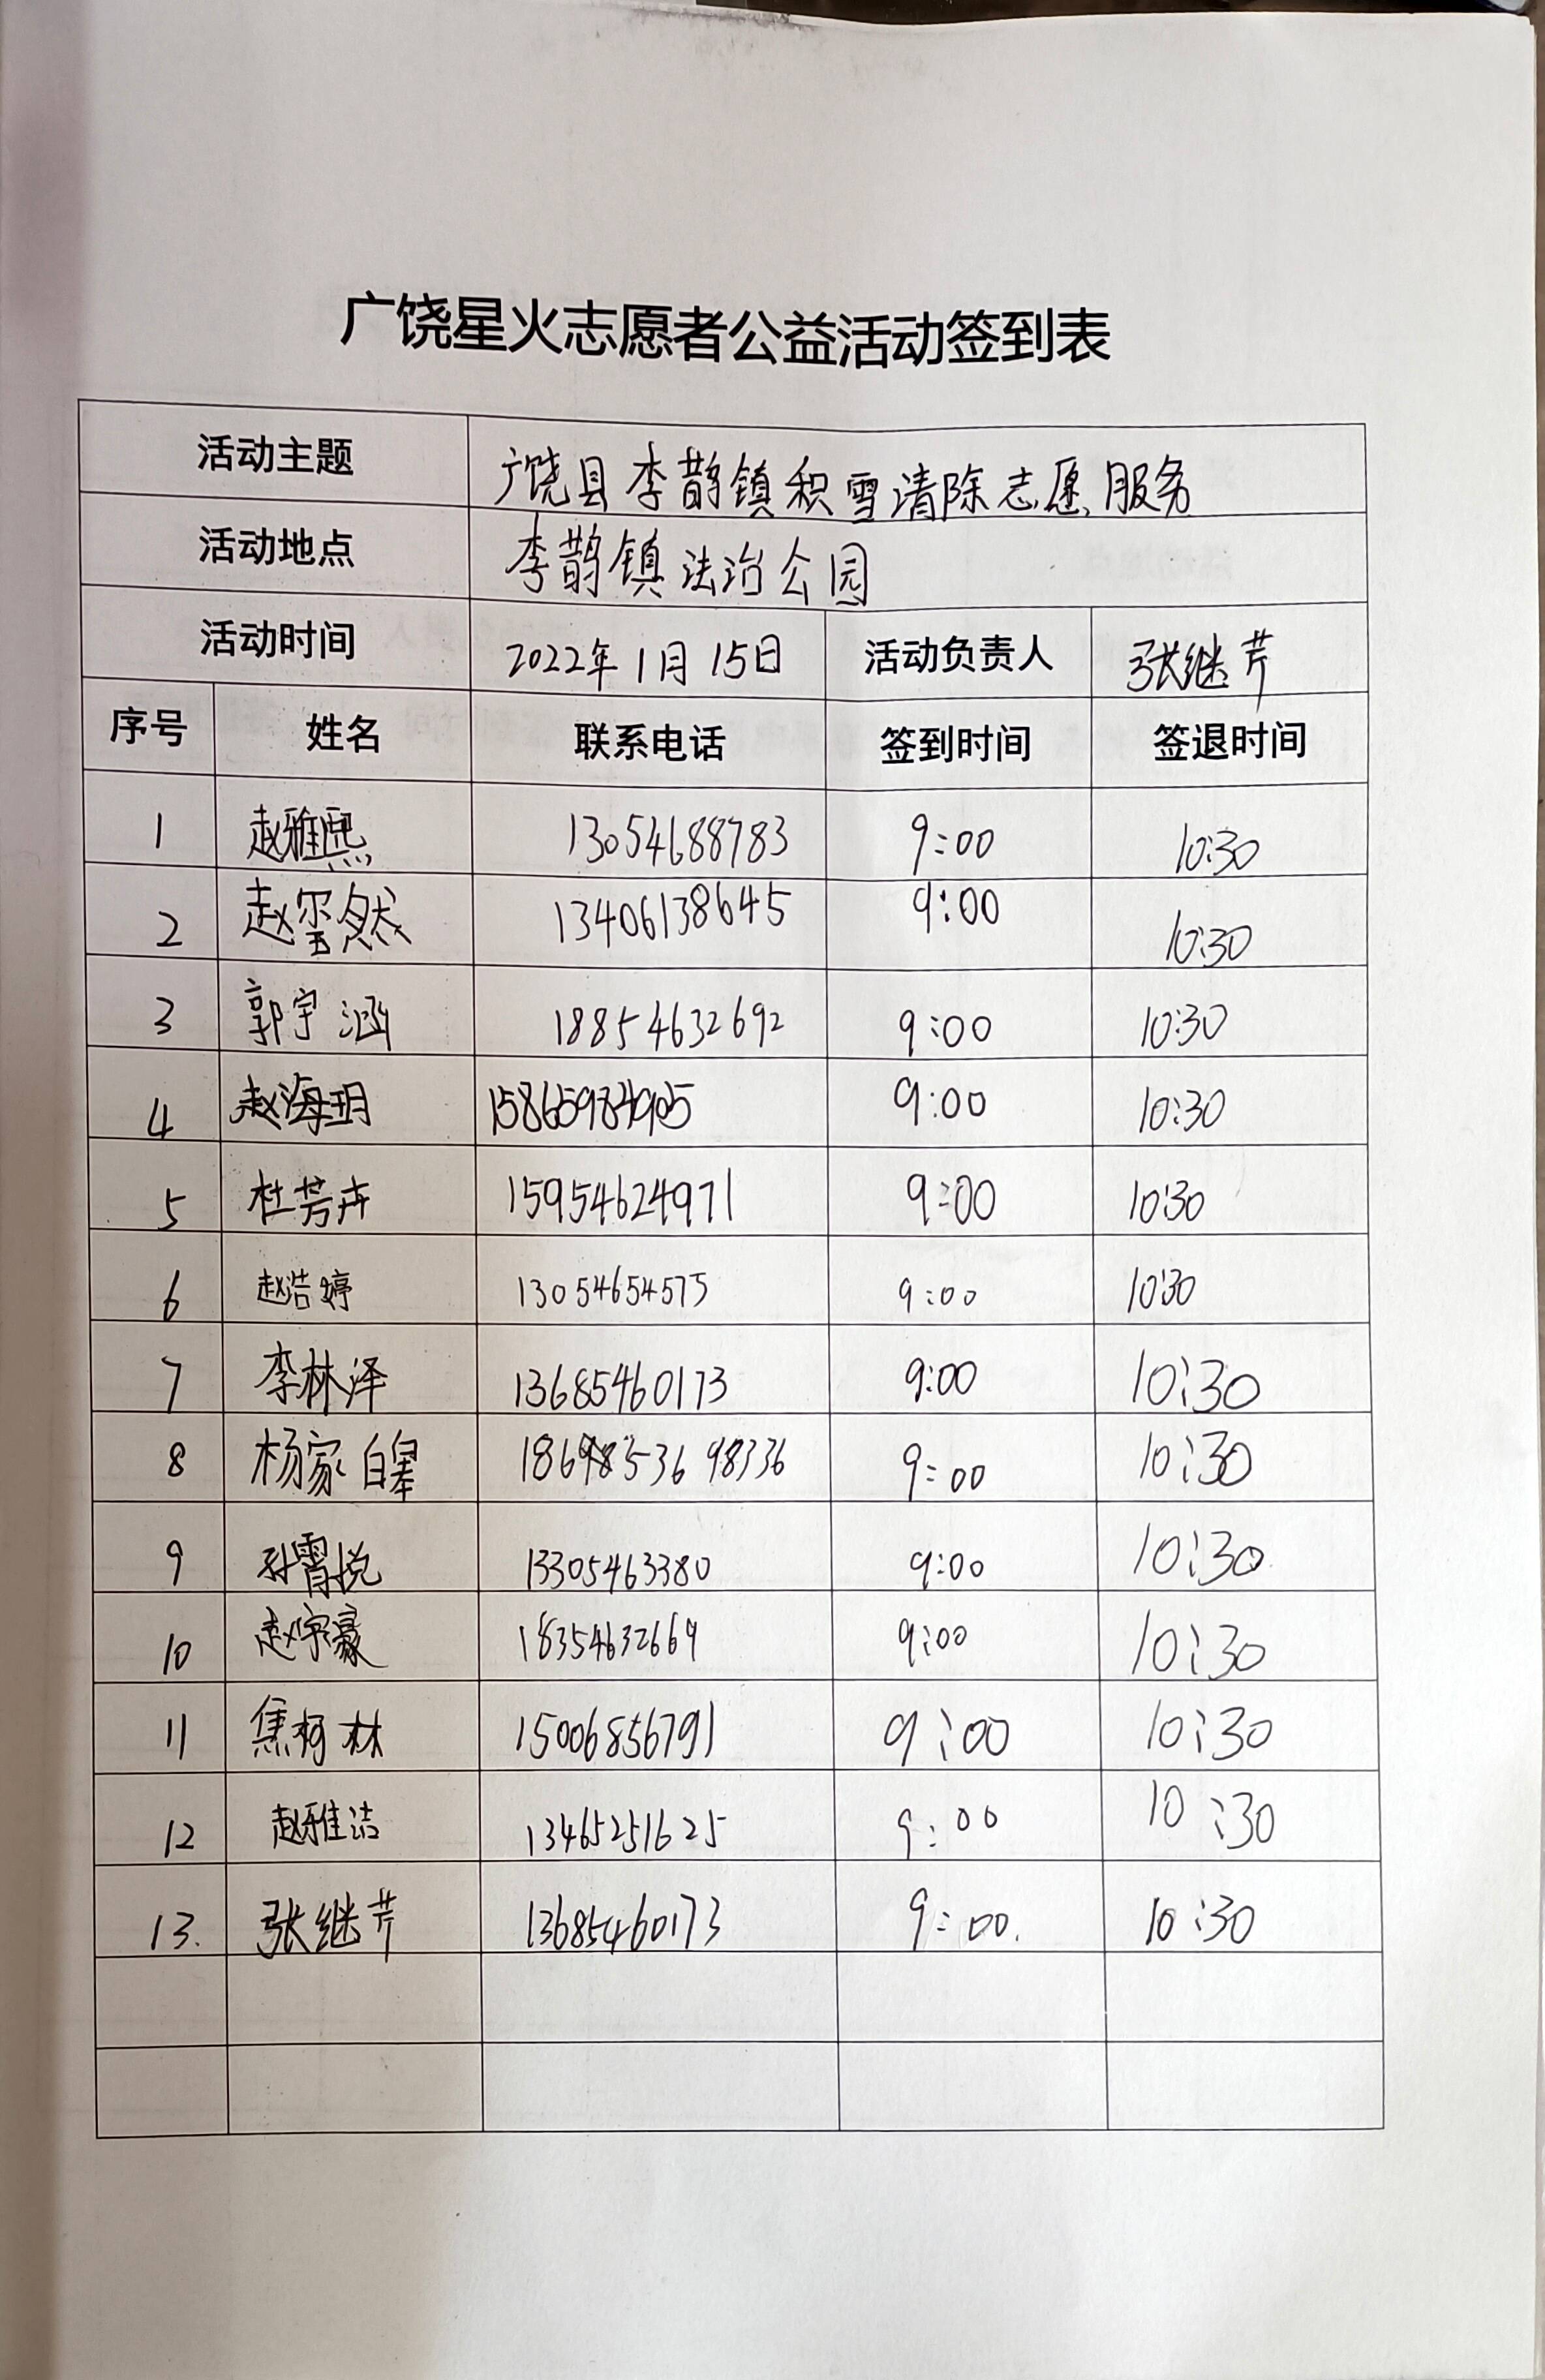 广饶星火志愿者公益活动签到表
活动主题 广饶县李鹊镇积雪清除志愿服务
活动地点 李鹊镇法治公园
活动时间 2022年1月15日 活动负责人 张继芹
序号 姓名 联系电话 签到时间 签退时间
1 赵雅熙 13054688783 9:00 10:30
2 赵玺然 13406138645 9:00 10:30
3 郭宇涵 18854632692 9:00 10:30
4 赵海玥 9:00 10:30
5 杜芳卉 15954624971 9:00 10:30
6 赵浩婷 13054654575 9:00 10:30
7 李林泽 13685460173 9:00 10:30
8 杨家皞 9:00 10:30
9 孙霄悦 13305463380 9:00 10:30
10 赵宇豪 18354632669 9:00 10:30
11 焦柯林 15006856791 9:00 10:30
12 赵雅洁 13465251625 9:00 10:30
13. 张继芹 13685460173 9:00. 10:30